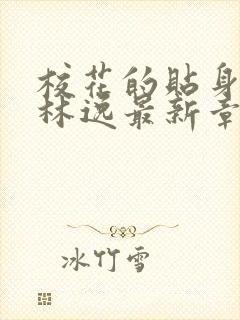 校花的贴身
林逸最新章
冰竹雪